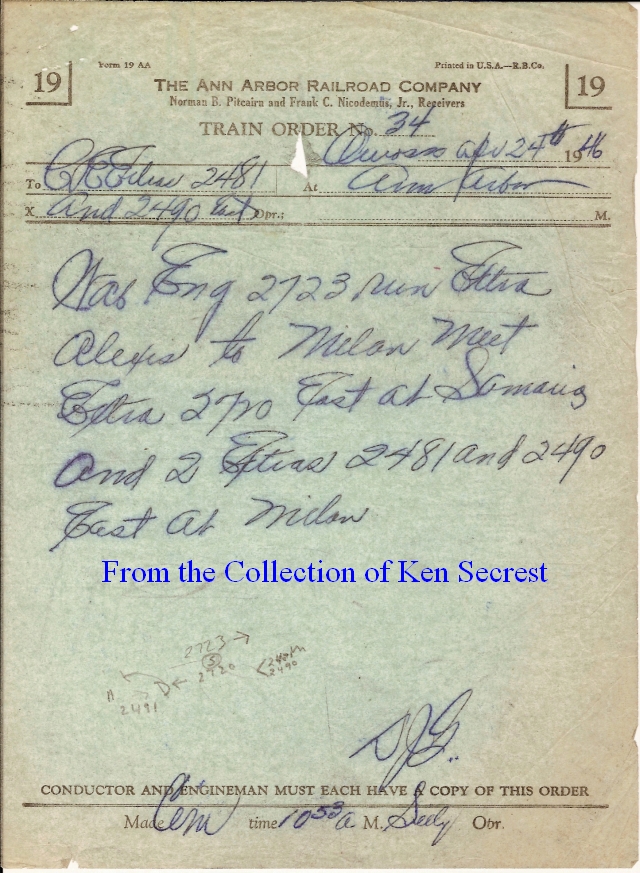 Form 19 AA Printed in U.S.A.—R.B.Co.
19 19
THE ANN ARBOR RAILROAD COMPANY
Norman B. Pitcairn and Frank C. Nicodemus, Jr., Receivers
TRAIN ORDER No. 34
Owosso Apr 24th 1946
To C&E Extra 2481 At Ann Arbor
X And 2490 East Opr.; M.
Eng 2723 run Extra
Alexis to Milan Meet
Extra 2720 East at Samaria
And 2 Extras 2481 and 2490
East at Milan
From the Collection of Ken Secrest
2723
S
2720
2490
2481
SJG.
CONDUCTOR AND ENGINEMAN MUST EACH HAVE A COPY OF THIS ORDER
Made Com time 1053 A M. Seely Opr.